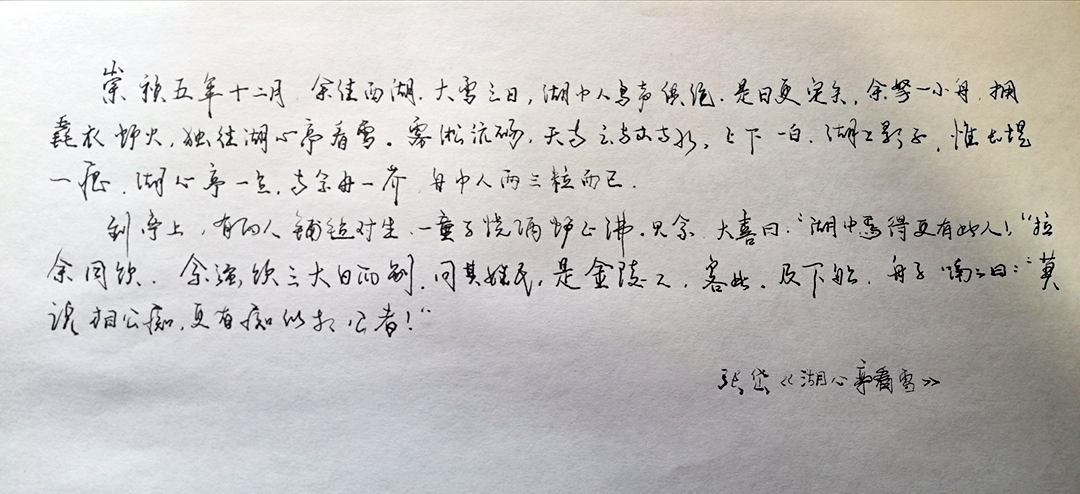 崇祯五年十二月,余住西湖.大雪三日,湖中人鸟声俱绝.是日更定矣,余拏一小舟,拥
毳衣炉火,独往湖心亭看雪。雾凇沆砀,天与云与山与水,上下一白.湖上影子,惟长堤
一痕.湖心亭一点,与余舟一芥.舟中人两三粒而已.
到亭上,有两人铺毡对坐.一童子烧酒炉正沸.见余大喜曰:“湖中焉得更有此人!”拉
余同饮.余强饮三大白而别.问其姓氏,是金陵人,客此.及下船,舟子喃喃曰:“莫
说相公痴,更有痴似相公者!”
张岱《湖心亭看雪》